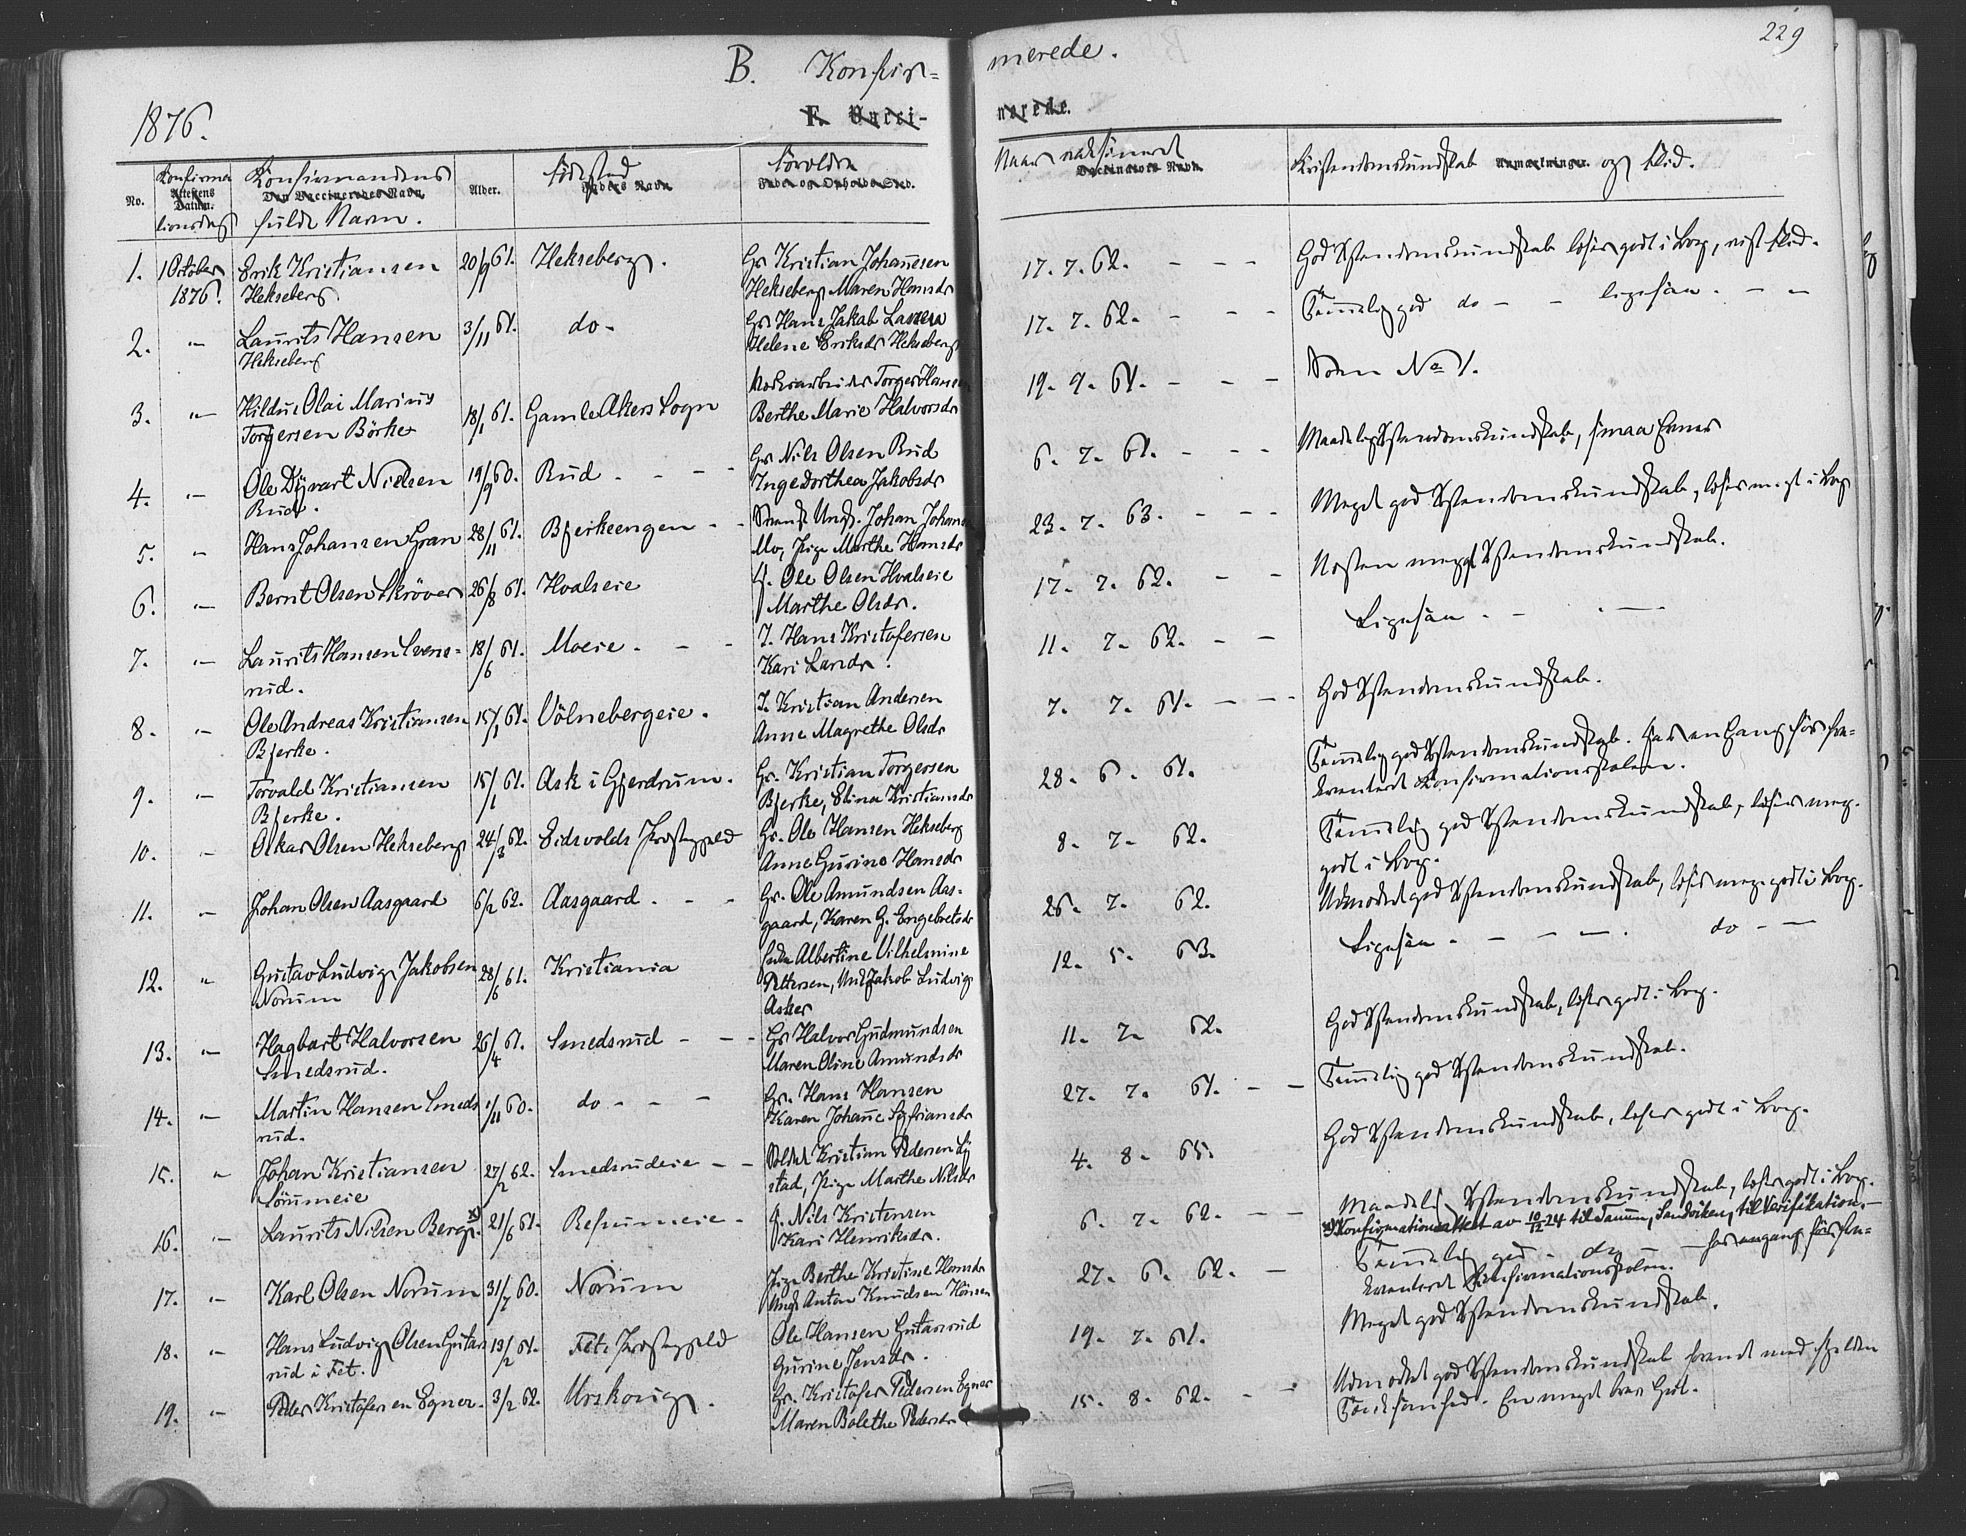 229
B. Konfir=
merede.
1876.
F. Vacci-
nerede.
No.
Konfirma
Attestens
Datum.
tionsdag
Konfirmandens
Den Vaccineredes Navn.
fulde Navn.
Alder.
Födested
Faders Navn
Forældre
Faders og Opholds-Sted.
Naar vaksineret
Vaccinators Navn.
Kristendomskundskab Anmærkninger. og Flid.
1. 1 October 1876. Erik Kristiansen 20/9 61. Hekseberg. Gr Kristian Johannesen 17. 7. 62. - - - God Kristendomskundskab læser godt i Bog, vist Flid.
Hekseberg Hekseberg Maren Hansdr
2. " Laurits Hansen 3/11 61. do - Gr Hans Jakob Larsen 17. 7. 62. - - - Temmelig god do - - ligesaa. - -
Hekseberg Helene Eriksdr Hekseberg
3. " Hildus Olai Marius 18/1 61. Gamle Akers Sogn Torger Hansen 19. 9. 61. - - - Som No 1.
Torgersen Börke Berthe Marie Halvorsdr
4. " Ole Dyvart Nielsen 19/9 60. Rud - - - Gr Nils Olsen Rud 6. 7. 61. - - - Maadelig Kristendomskundskab, smaa Evner
Rud. Inge Dorthea Jakobsdr
5. " Hans Johansen Gran 28/11 61. Bjerkeengen - - Ungk. Johan Johans 23. 7. 63. - - - Meget god Kristendomskundskab, læser meget i Bog
Mo, Pige Marthe Hansdr
6. " Bernt Olsen Skröver 26/8 61. Hvalseie Ole Olsen Hvalseie 17. 7. 62. - - Næsten meget Kristendomskundskab.
Marthe Olsdr.
7. " Laurits Hansen Svens- 18/6 61. Moeie. - - I. Hans Kristofersen 11. 7. 62. - - Ligesaa. -
rud. Kari Larsdr.
8. " Ole Andreas Kristiansen 15/1 61. Völnebergeie. I. Kristian Andersen 7. 7. 61. - - - God Kristendomskundskab.
Bjerke. Anne Magrethe Olsdr
9. " Torvald Kristiansen 15/1 61. Ask i Gjerdrum. Gr. Kristian Torgersen 28. 6. 61. Temmelig god Kristendomskundskab. Har en Gang för fre-
Bjerke. Bjerke, Elina Kristiansdr kventeret Konfirmationsskolen.
10. " Oskar Olsen Hekseberg 24/8 62. Eidsvolds Præstegjeld Gr. Ole Hansen Hekseberg 8. 7. 62. Temmelig god Kristendomskundskab, læser meg.
Anne Gurine Hansdr godt i Bog.
11. " Johan Olsen Aasgaard 6/2 62. Aasgaard. - - Gr. Ole Amundsen Aas- 26. 7. 62. Udmærket god Kristendomskundskab, læser meg. godt i Bog.
gaard, Karen G. Engebretsdr
12. " Gustav Ludvig Jakobsen 28/6 61. Kristiania Albertine Vilhelmine 12. 5. 63. Ligesaa - - - -. do - -
Norum Pettersen, Jakob Ludvigs
Asker
13. " Hagbart Halvorsen 26/4 61. Smedsrud - - - Gr Halvor Gudmundsen 11. 7. 62. God Kristendomskundskab, læser godt i Bog.
Smedsrud. Maren Oline Amundsdr
14. " Martin Hansen Smeds 1/11 60. do - - - Gr. Hans Hansen 27. 7. 61. - - Temmelig god Kristendomskundskab.
rud. Karen Johanne Syfriansdr
15. " Johan Kristiansen 27/2 62. Smedsrudeie - - Soldat Kristian Pedersen Ly 4. 8. 65. God Kristendomskundskab, læser godt i Bog.
Sörumeie stad, Pige Marthe Nilsdr
16. " Laurits Nilsen Berg. x) 21/6 61. Refsumeie - Nils Kristensen 6. 7. 62. - - Maadelig Kristendomskundskab, læser godt i Bog.
Kari Henriksdr. x) Konfirmationsattest av 10/12 24 til Tanum, Sandviken, til Verifikation. -
17. " Karl Olsen Norum 31/7 60. Norum Pige Berthe Kristine Hansdr 27. 6. 62. - Temmelig god - do - - har engang för fre-
Ungk Anton Knudsen Hönsen kventeret Konfirmationsskolen.
18. " Hans Ludvig Olsen Gutas 13/2 61. Fets Præstegjeld Ole Hansen Gutasrud 19. 7. 61. Meget god Kristendomskundskab.
rud i Fet. Gurine Jensdr.
19. " Peder Kristofersen Egner. 3/2 62. Urskoug. Gr. Kristofer Pedersen Egner 15. 8. 62. - - Udmærket god Kristendomskundskab forenet med sjelden
Maren Bolethe Pedersdr Tænksomhed. En meget brav Gut.